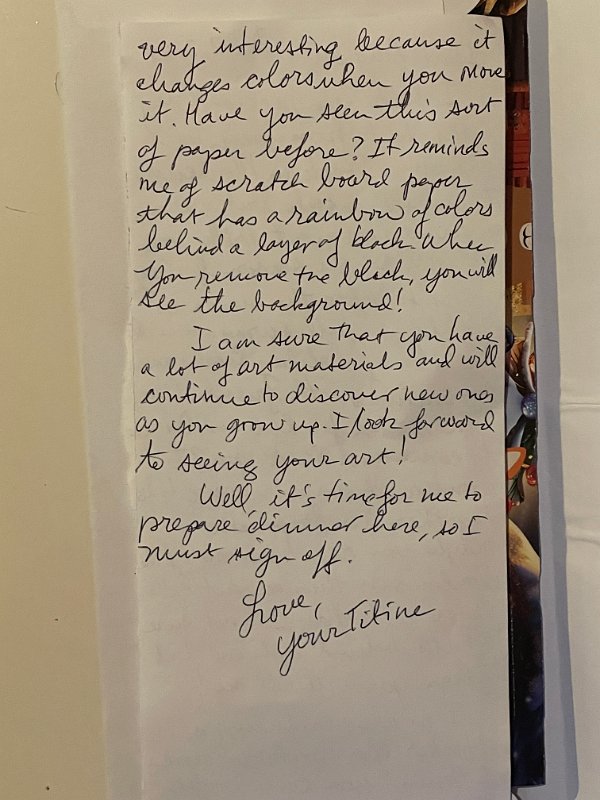 very interesting because it
changes colors when you move
it. Have you seen this sort
of paper before? It reminds
me of scratch board paper
that has a rainbow of colors
behind a layer of black. When
you remove the black, you will
see the background!
I am sure that you have
a lot of art materials and will
continue to discover new ones
as you grow up. I look forward
to seeing your art!
Well, it's time for me to
prepare dinner here, so I
must sign off.
Love,
your Titine